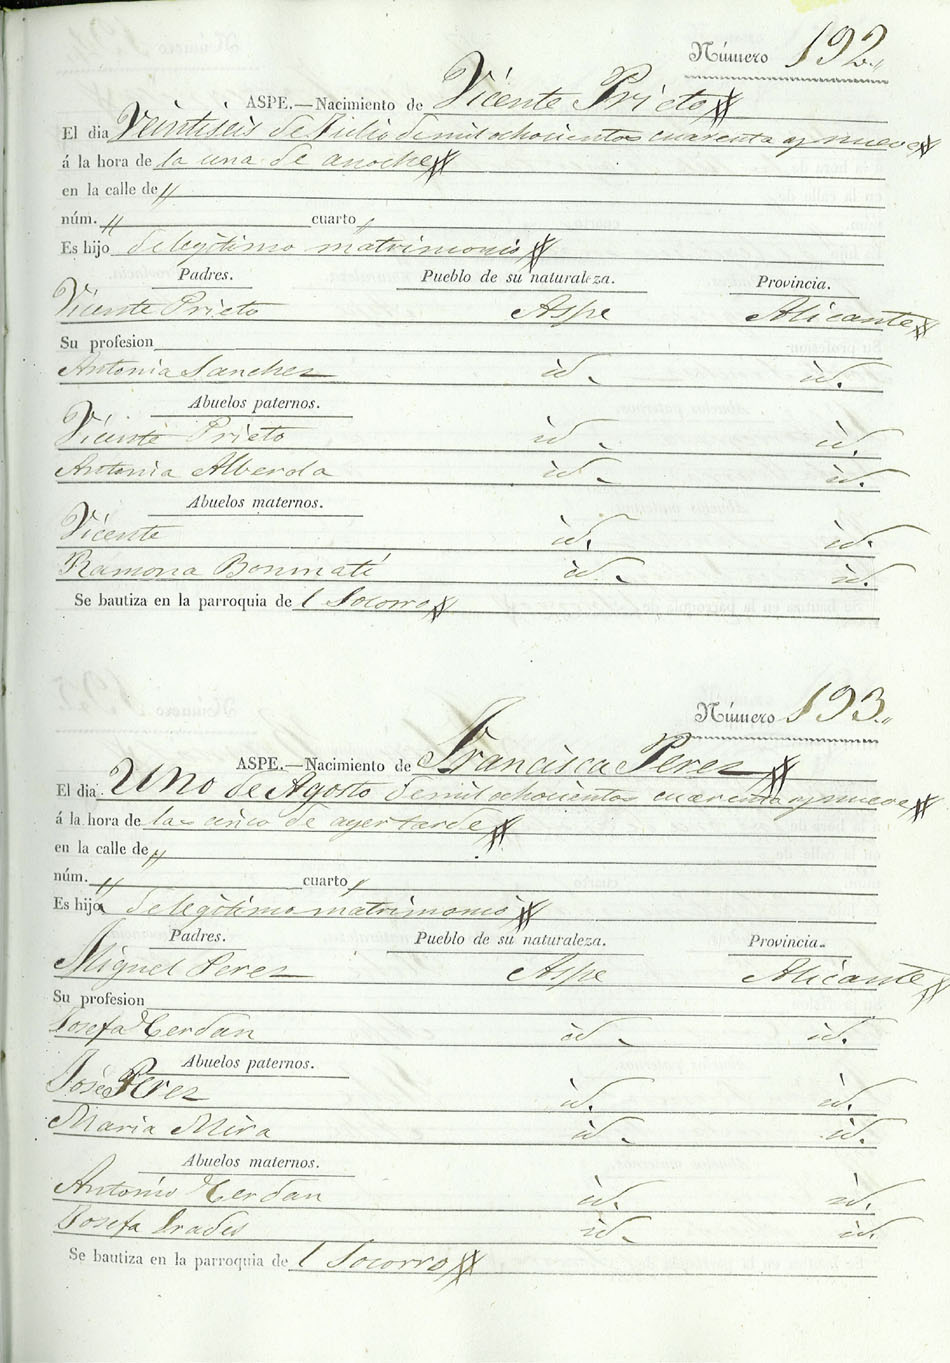 Número 192.
ASPE.—Nacimiento de Vicente Prieto
El dia Veintiseis de Julio de mil ochocientos cuarenta y nueve
á la hora de la una de anoche
en la calle de "
núm. " cuarto "
Es hijo de legitimo matrimonio
Padres. Pueblo de su naturaleza. Provincia.
Vicente Prieto Aspe Alicante
Su profesion
Antonia Sanchez id. id.
Abuelos paternos.
Vicente Prieto id. id.
Antonia Alberola id. id.
Abuelos maternos.
Vicente id. id.
Ramona Bonmatí id. id.
Se bautiza en la parroquia de l Socorro
Número 193.
ASPE.—Nacimiento de Francisca Perez
El dia Uno de Agosto de mil ochocientos cuarenta y nueve
á la hora de las cinco de ayer tarde
en la calle de "
núm. " cuarto "
Es hija de legitimo matrimonio
Padres. Pueblo de su naturaleza. Provincia.
Miguel Perez Aspe Alicante
Su profesion
Josefa Cerdan id. id.
Abuelos paternos.
José Perez id. id.
Maria Mira id. id.
Abuelos maternos.
Antonio Cerdan id. id.
Josefa Prades id. id.
Se bautiza en la parroquia de l Socorro